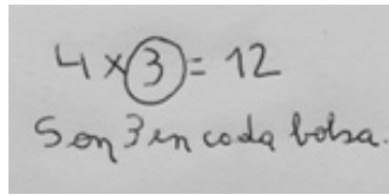 4 x 3 = 12
Son 3 en cada bolsa.